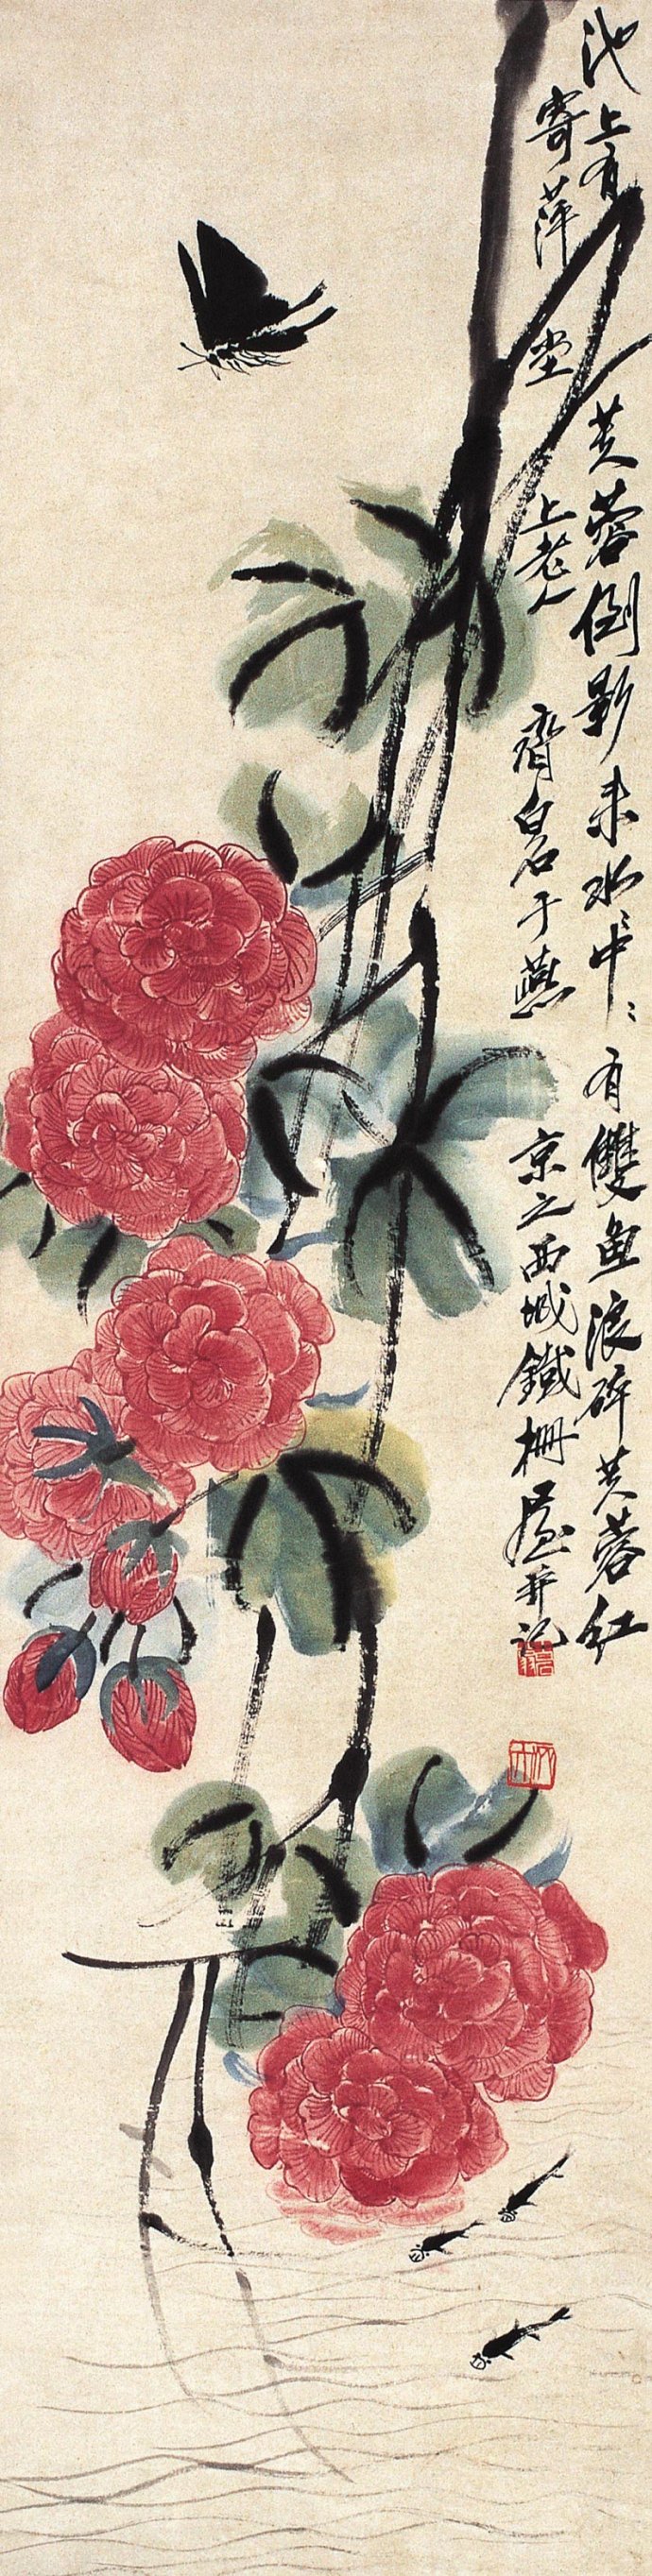 池上有芙蓉倒影来水中〻有雙魚浪碎芙蓉紅
寄萍堂上老人齊白石于燕京之西城鐵柵屋并記